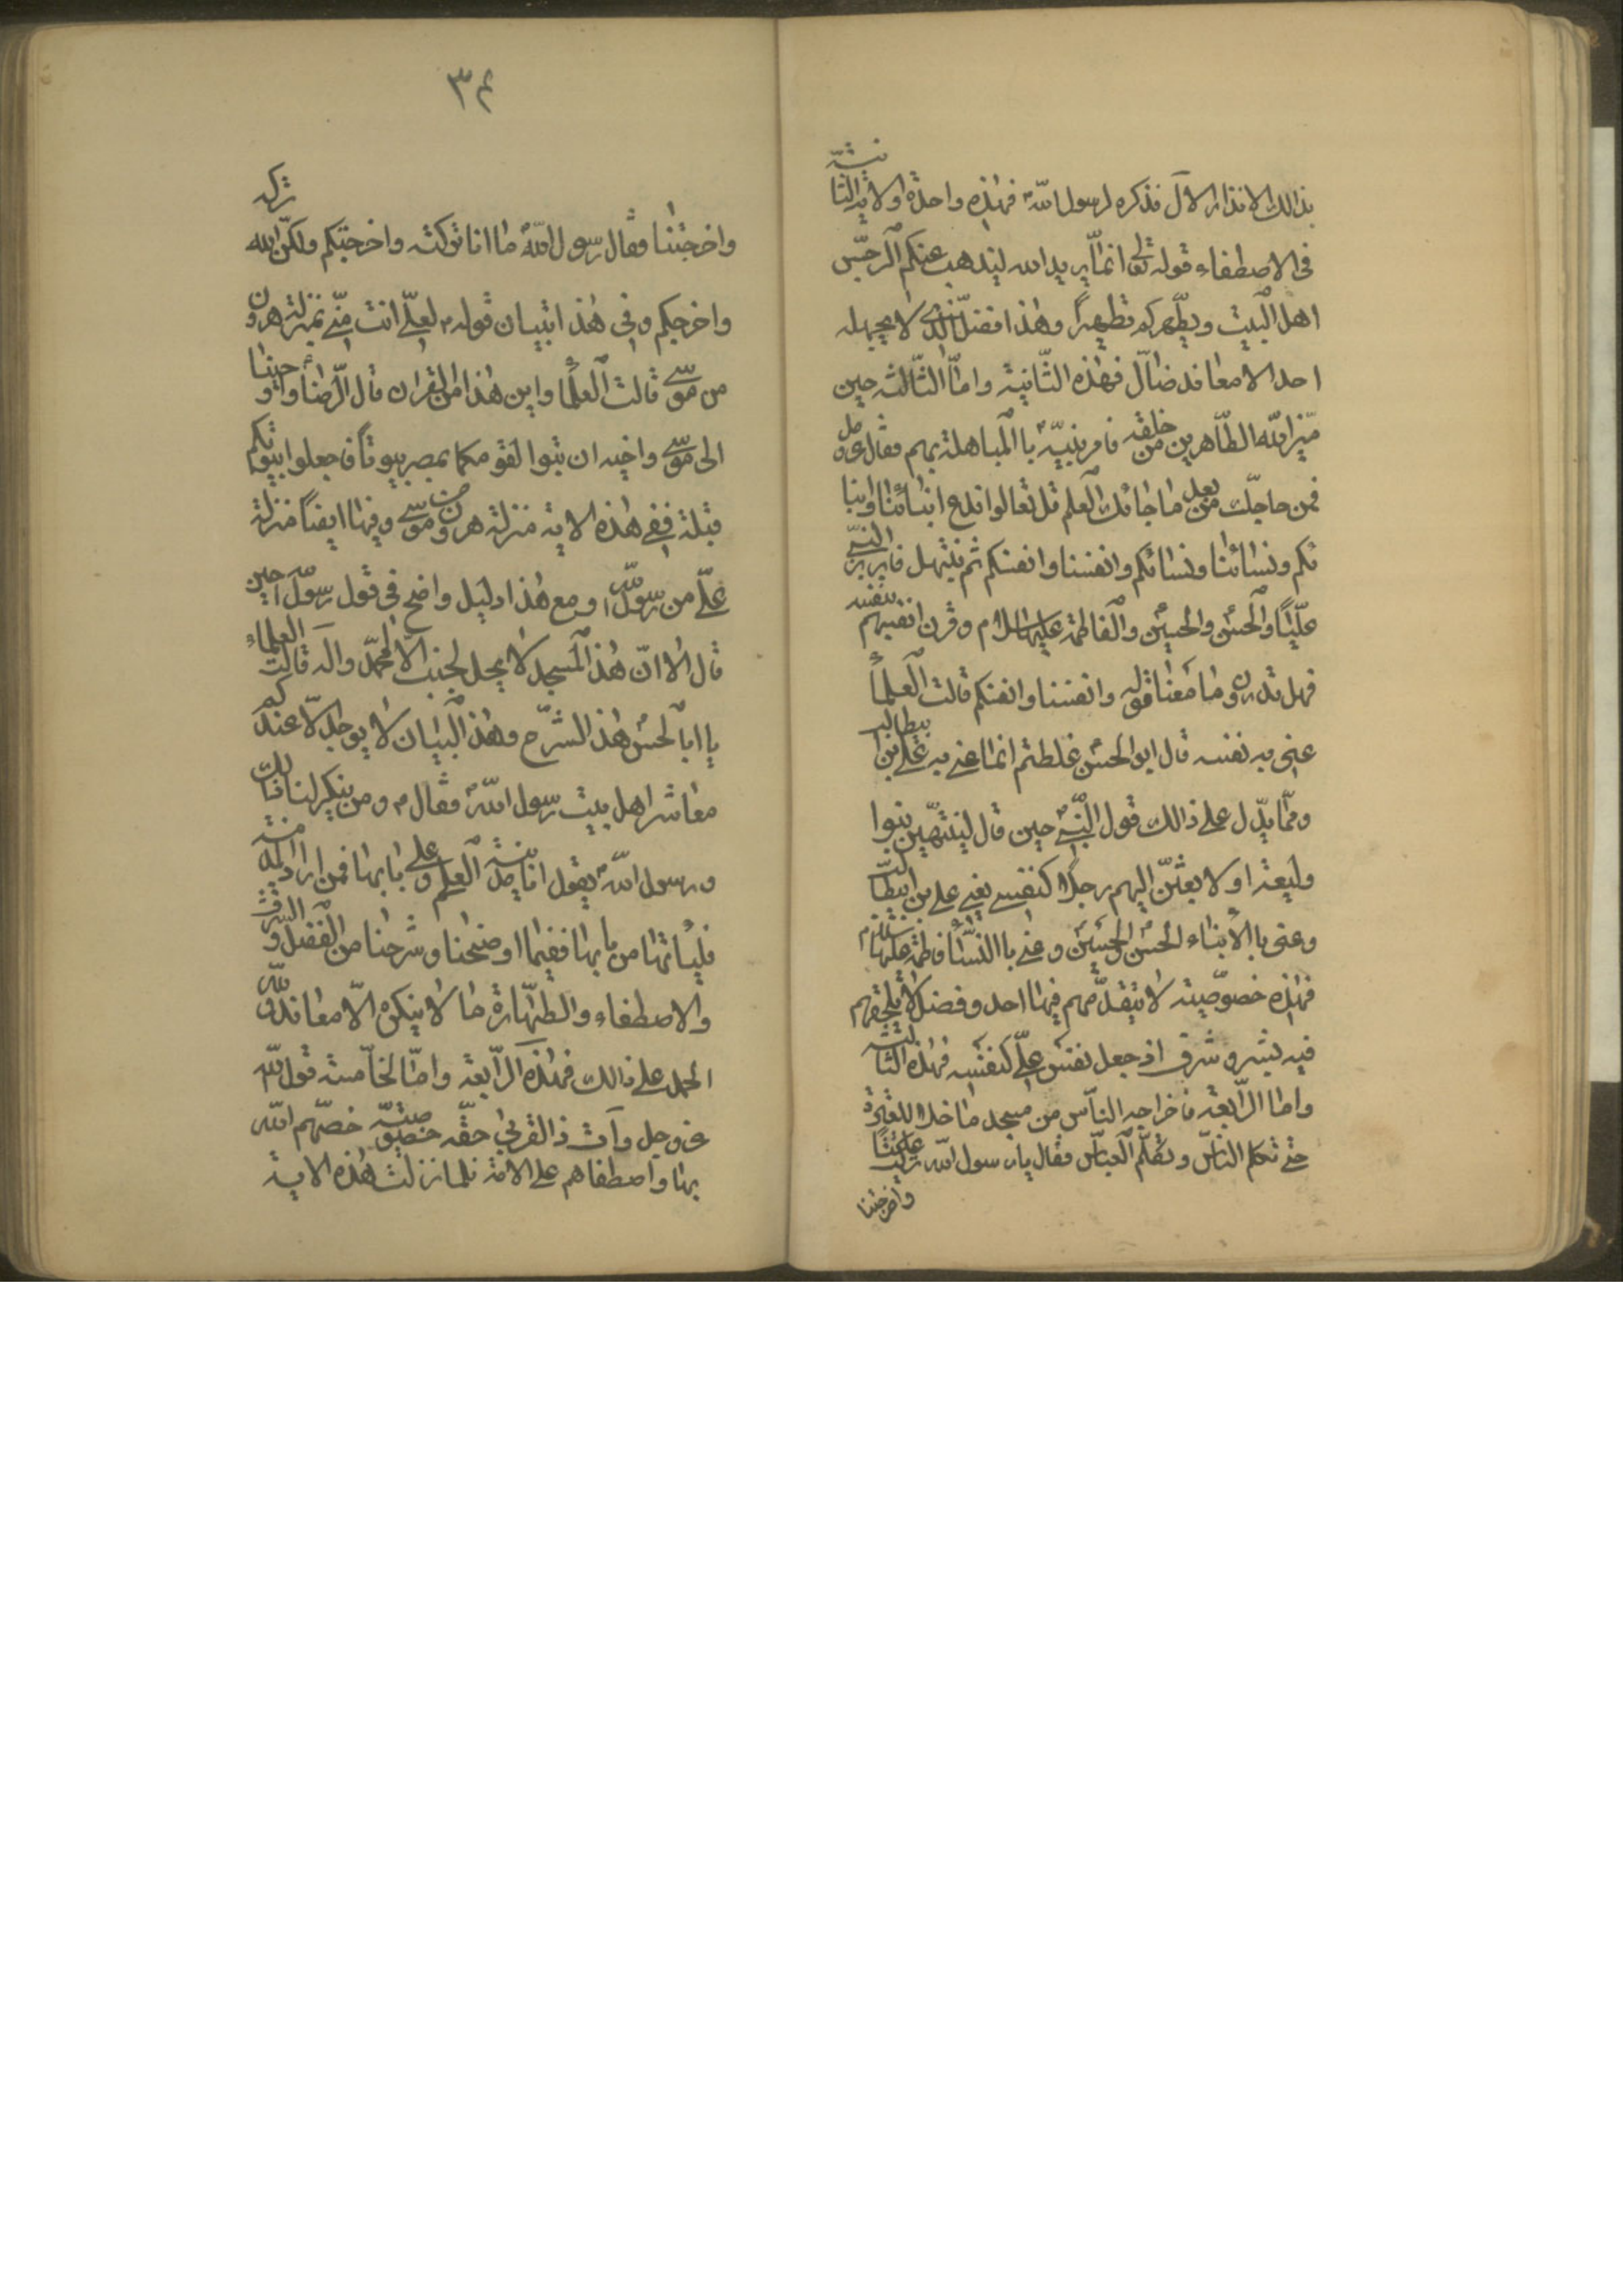 بذالك الانذار الاول فذكره لرسول الله فهذه واحدة والاية الثانية
فى الاصطفاء قوله تعالى انما يريد الله ليذهب عنكم الرجس
اهل البيت ويطهركم تطهيرا وهذا فضل الذى لا يجهله
احد الا معاند ضال فهذه الثانية واما الثالثه حين
ميز الله الطاهرين من خلقه فامر نبيه باالمباهلة بهم فقال عز وجل
فمن حاجك من بعد ما جائك العلم قل تعالوا ندع ابنائنا وابنا
ئكم ونسائنا ونسائكم وانفسنا وانفسكم ثم نبتهل فابرز النبى
عليا والحسن والحسين والفاطمة عليها السلام وقرن انفسهم بنفسه
فهل تدرون ما معنا قوله وانفسنا وانفسكم قالت العلماء
عنى به نفسه قال ابو الحسن غلطتم انما عنى به على بن ابيطالب
ومما يدل على ذالك قول النبى حين قال لينتهين بنوا
وليعة او لا بعثن اليهم رجلا كنفسى يعنى على بن ابيطالب
وعنى باالابناء الحسن والحسين وعنى باالنساء فاطمة عليها السلام
فهذه خصوصيته لا يتقدمهم فيها احد وفضل لا يلحقهم
فيه بشر وشرف اذ جعل نفس على كنفسه فهذه الثالثه
واما الرابعة فاخراجه الناس من مسجد ما خلا للعترة
حتى تكلم الناس وتكلم العباس فقال يا رسول الله تركت عليا
واخرجتنا
٣٤
واخرجتنا فقال رسول الله ما انا تركته واخرجتكم ولكن الله تركه
واخرجكم وفى هذا تبيان قوله لعلى انت منى بمنزلة هرون
من موسى قالت العلما واين هذا من القران قال الرضا واوحينا
الى موسى واخيه ان تبوا لقومكما بمصر بيوتا فجعلوا بيوتكم
قبلة ففى هذه الاية منزلة هرون من موسى وفيها ايضا منزلة
على من رسول الله ومع هذا دليل واضح فى قول رسول الله حين
قال الا ان هذ المسجد لا يحل لجنب الا لمحمد واله قالت العلماء
يا ابا لحسن هذ الشرح وهذ البيان لا يوجد الا عندكم
معاشر اهل بيت رسول الله فقال ومن ينكر لنا ذالك
ورسول الله يقول انا مدينة العلم وعلى بابها فمن اراد المدينة
فلياتها من بابها ففيما اوضحنا وشرحنا من الفضل والشرف
والاصطفاء والطهارة ما لا ينكره الا معاند ولله
الحمد على ذالك فهذه الرابعة واما الخامسة قول الله
عز وجل وآت ذا القربى حقه خصوصية خصهم الله
بها واصطفاهم على الامة فلما نزلت هذه الاية